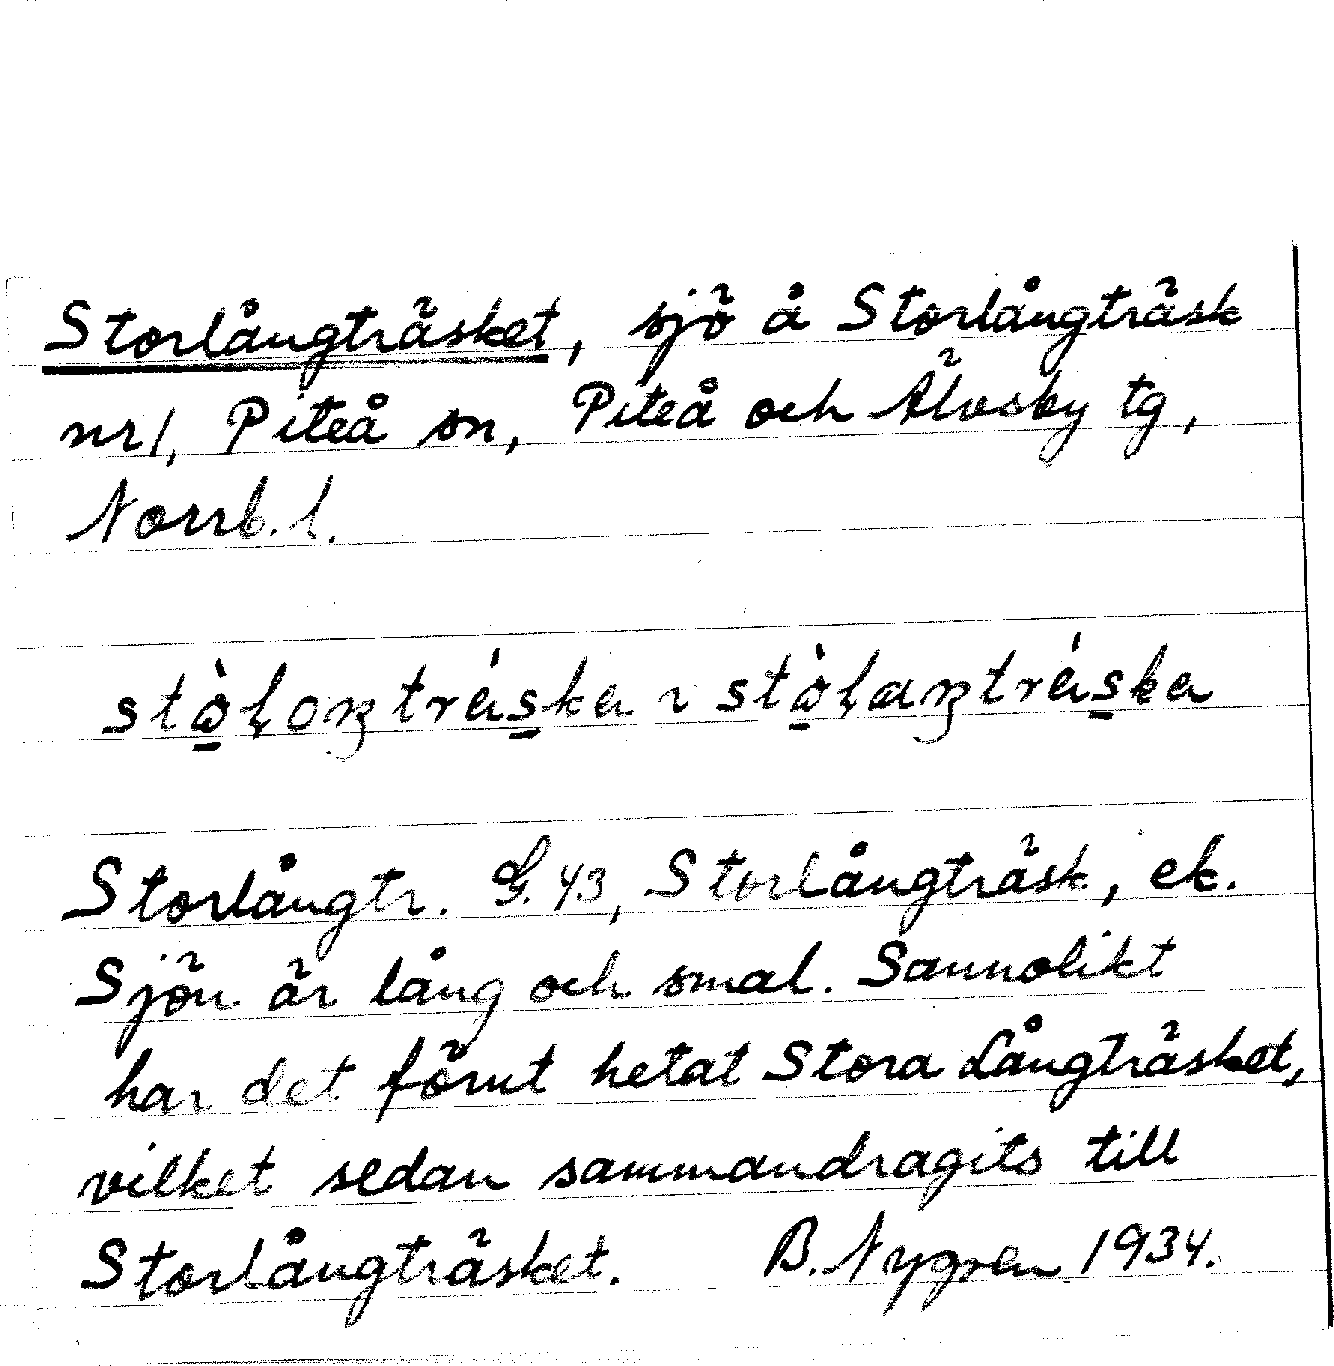 Storlångträsket, sjö å Storlångträsk
nr 1, Piteå sn, Piteå och Älvsby tg,
Norrb. l.
Storlångtr. G. 43, Storlångträsk, ek.
Sjön är lång och smal. Sannolikt
har det förut hetat Stora Långträsket,
vilket sedan sammandragits till
Storlångträsket. B. Nygren 1934.